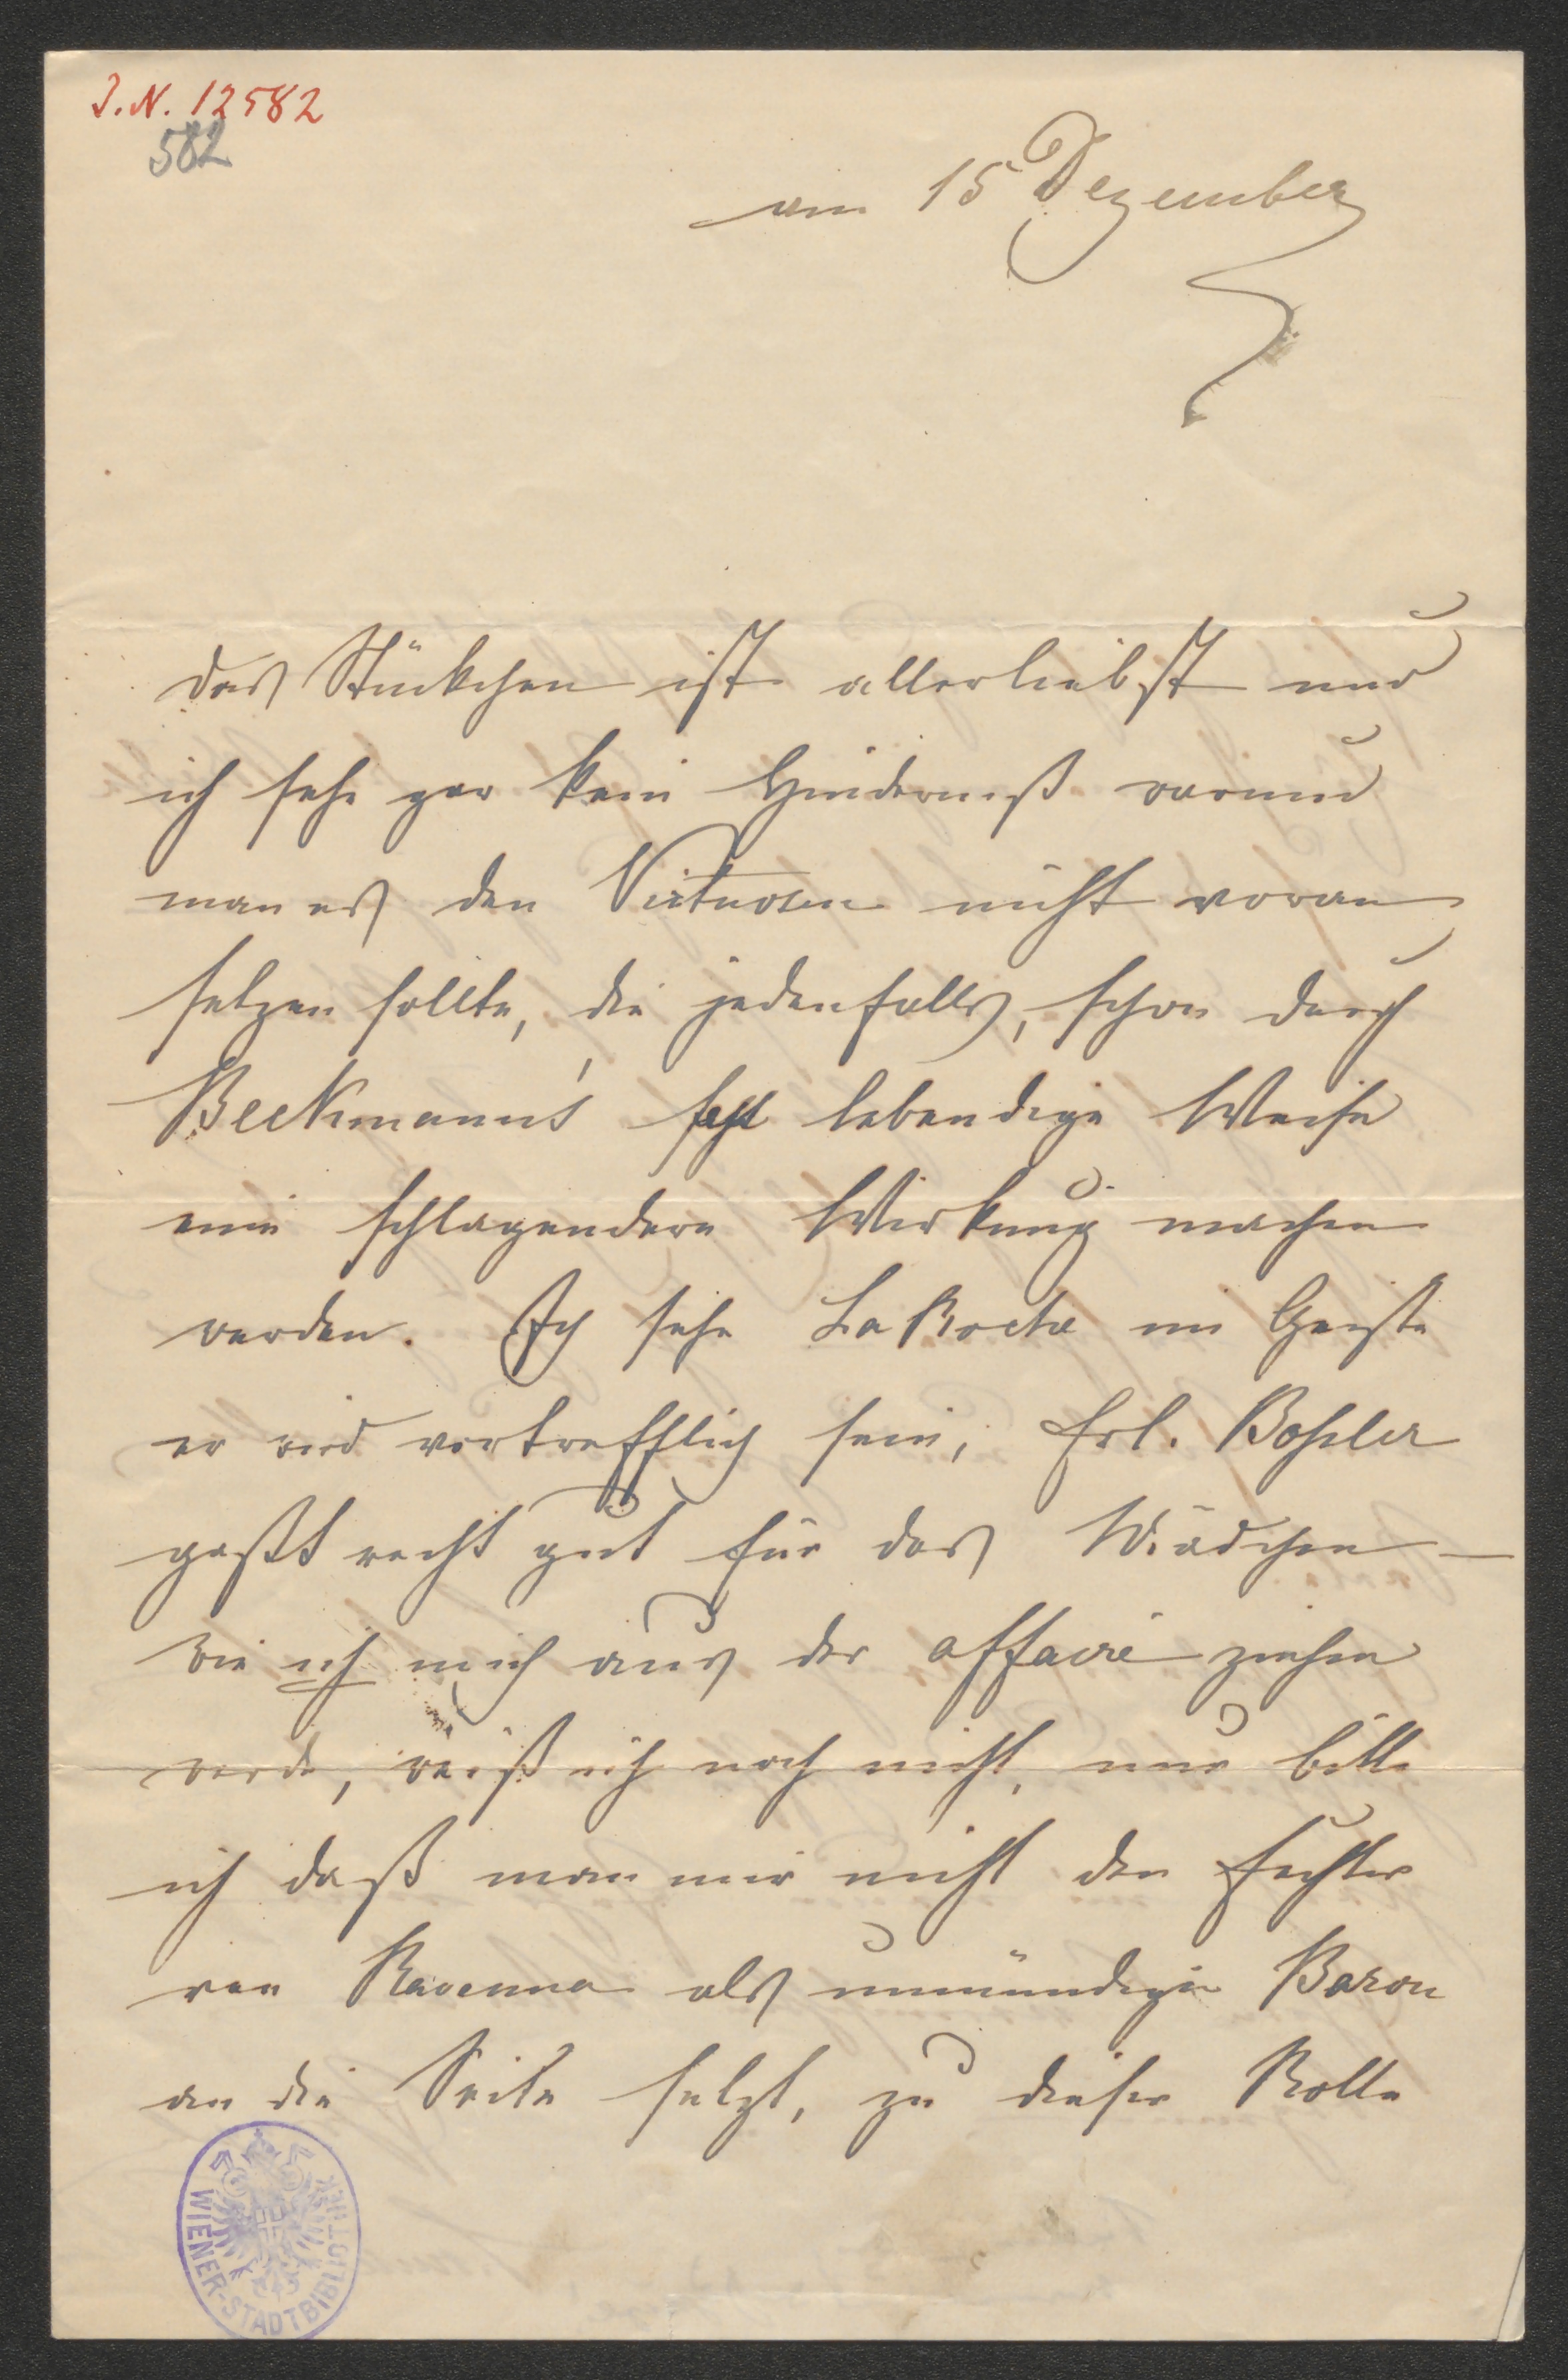 I.N. 12582
582
am 15 Dezember
das Stückchen ist allerliebst und
ich sehe gar kein Hinderniß warum
man es den Virtuosen nicht voran
setzen sollte, die jedenfalls, schon durch
Beckmann's lebendige Weise
eine schlagendere Wirkung machen
werden. Ich sehe La Roche im Geiste
er wird vortrefflich sein, Frl. Boßler
paßt recht gut für das Mädchen –
wie ich mich aus der affaire ziehen
werde, weiß ich noch nicht, nur bitte
ich daß man mir nicht den Fechter
von Ravenna als unmündigen Baron
an die Seite setzt, zu dieser Rolle
WIENER-STADTBIBLIOTHEK